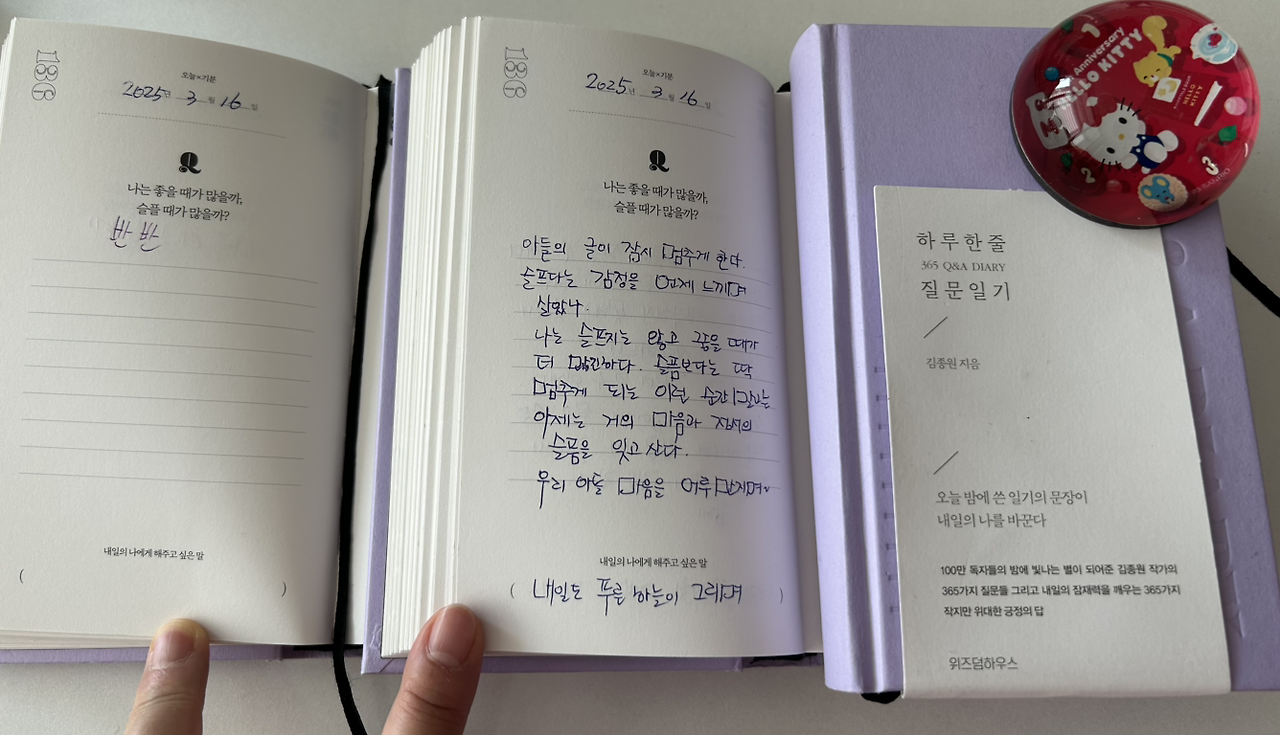 186
오늘×기분
2025년 3월 16일
Q
나는 좋을 때가 많을까,
슬플 때가 많을까?
반반
내일의 나에게 해주고 싶은 말
( )
186
오늘×기분
2025년 3월 16일
Q
나는 좋을 때가 많을까,
슬플 때가 많을까?
아들의 글이 잠시 멈추게 한다.
슬프다는 감정을 언제 느끼며
살았나.
나는 슬프지는 않고 좋을 때가
더 많긴하다. 슬픔보다는 딱
멈추게 되는 이런 순간 말고는
이제는 거의 마음과 자세의
슬픔을 잊고 산다.
우리 아들 마음을 어루만지며
내일의 나에게 해주고 싶은 말
( 내일도 푸른 하늘이 그려며 )
하루 한 줄
365 Q&A DIARY
질문 일기
김종원 지음
오늘 밤에 쓴 일기의 문장이
내일의 나를 바꾼다
100만 독자들의 밤에 빛나는 별이 되어준 김종원 작가의
365가지 질문들 그리고 내일의 잠재력을 깨우는 365가지
작지만 위대한 긍정의 답
위즈덤하우스
Anniversary
HELLO KITTY
1
2
3